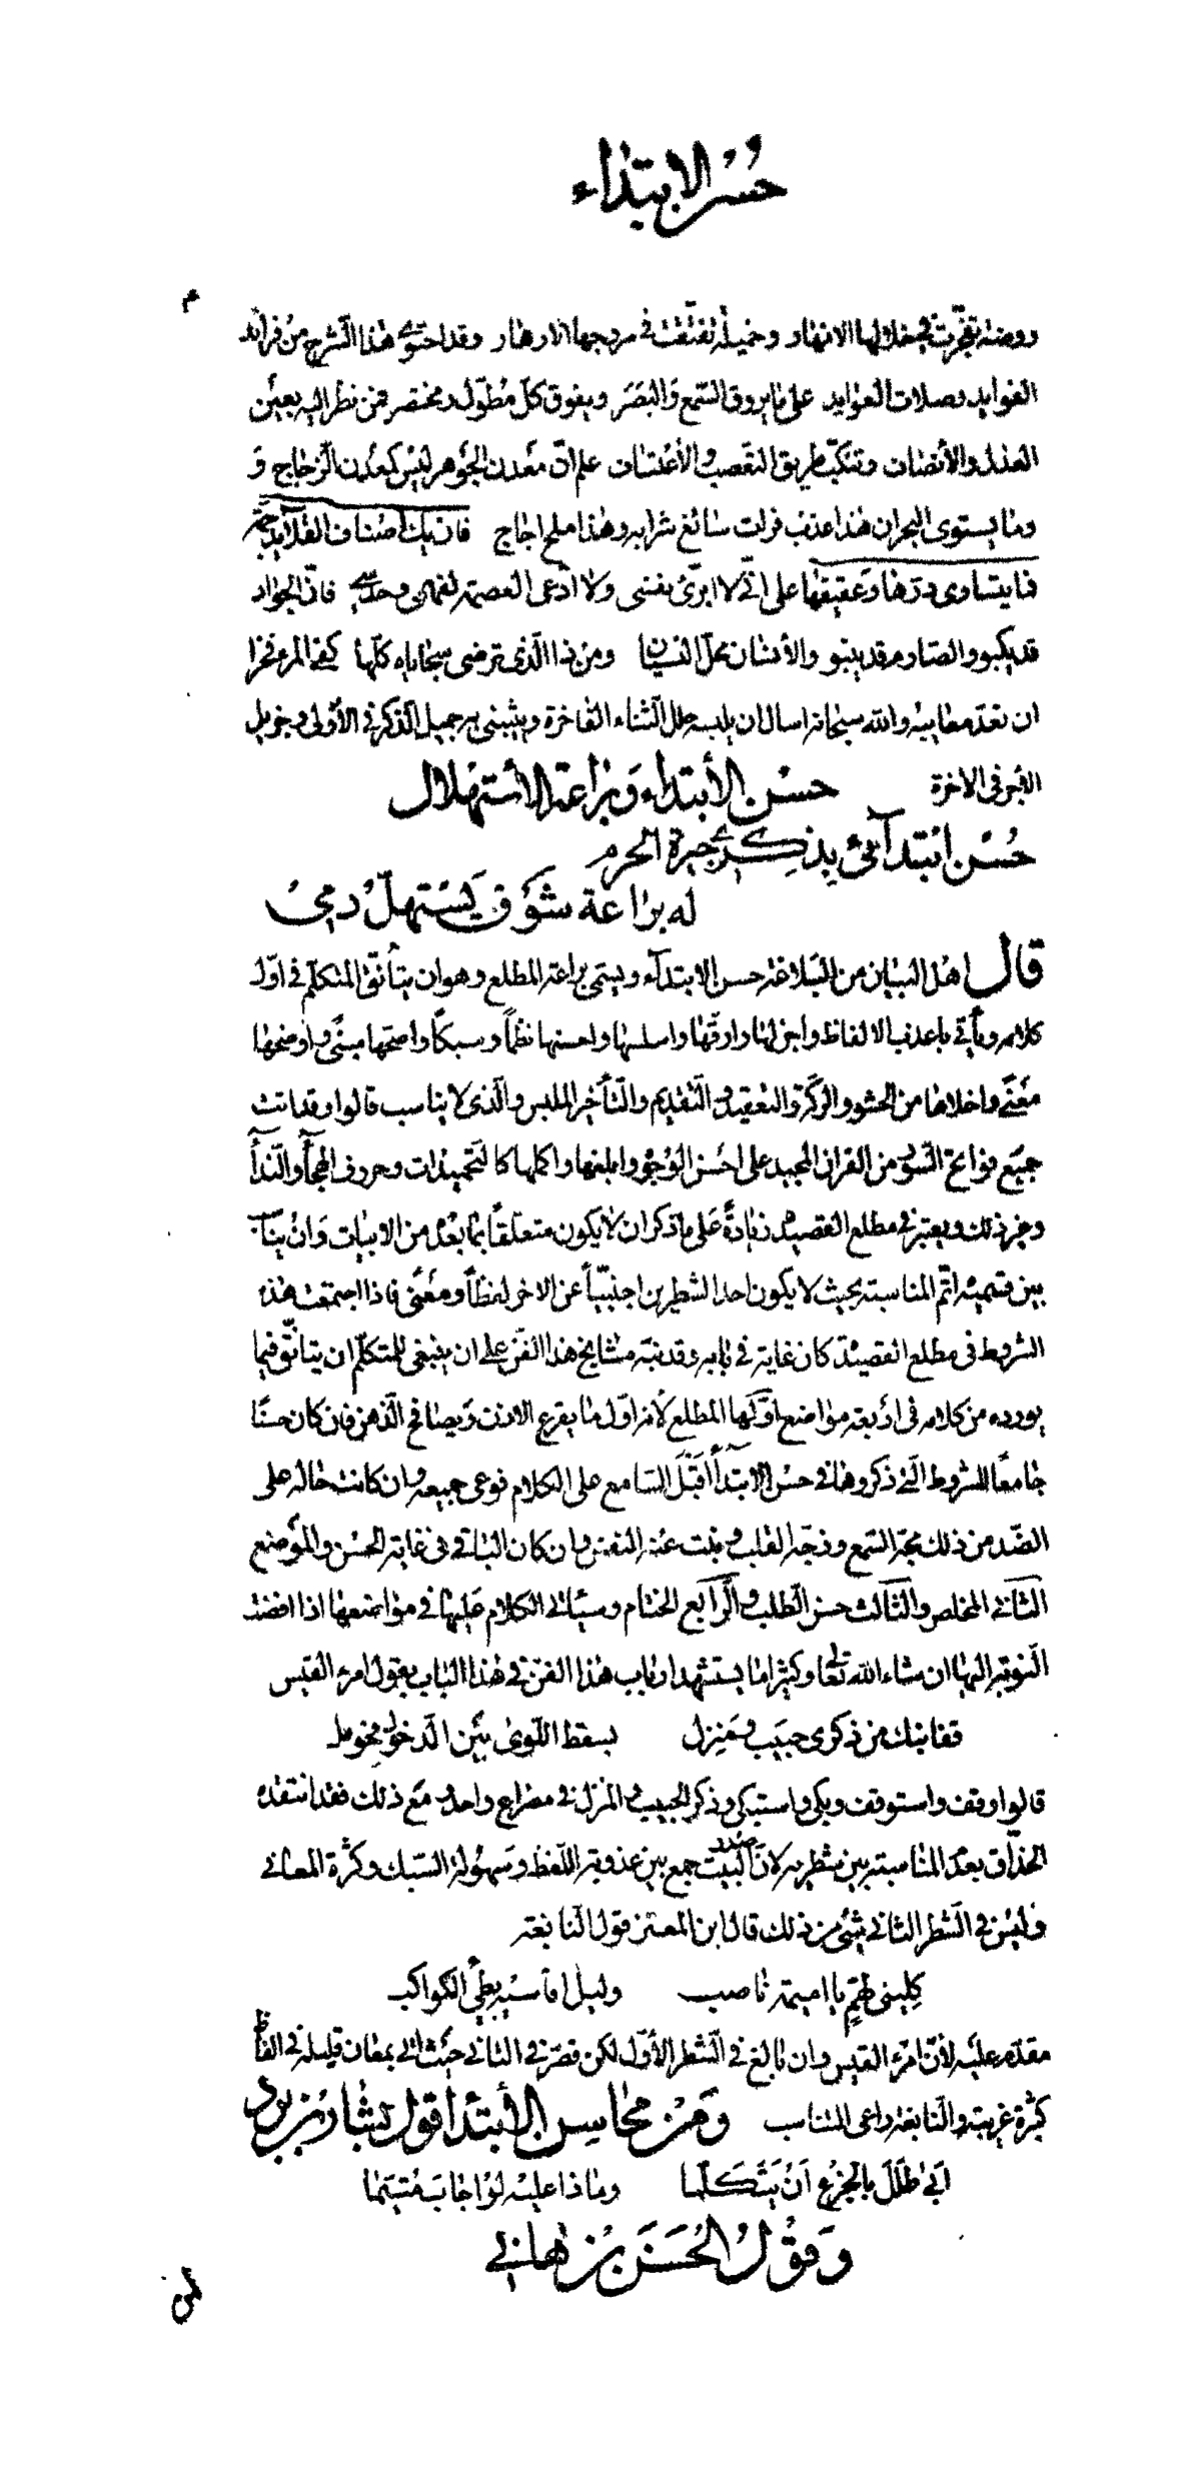 حُسْن الابتداء
م
روضة تفجّرت في خلالها الانهار وخميلة تفتّقت في مروجها الازهار وقد احتوى هذا الشرح من فرائد
الفوايد وصلات العوايد على ما يروق السّمع وَالبَصَر ويفوق كلّ مُطوّل ومختصر فمن نظر اليه بعين
العدل والأنصاف وتنكّب طريق التعصب والأعتساف علم انّ معدن الجوهر ليس كمعدن الزّجاج وَ
وما يستوى البحران هذا عذب فرات سائغ شرابه وهذا ملح اجاج فان يك اصناف القلائد جمّة
فما يتساوى درّها وعقيقها على انّى لا ابرّئ نفسى ولا ادّعى العصمة لفهمى وحدسى فانّ الجواد
قد يكبو والصّارم قد ينبو والأنسان محلّ النسيان ومن ذا الّذى ترضى سجاياه كلّها كفى المرء فخرا
ان تعدّ معايبه والله سبحانه اسال ان يلبسه حلل الثناء الفاخرة ويثيبنى به جميل الذكر فى الأولى وجزيل
الأجر فى الاخرة حسْن الأبتداء وَبراعة الأستهلال
حُسْن ابْتدآئى بِذِكرى جيرة الحرم
له براعة شَوْق يَسْتهلّ دمى
قال اهل البيان من البلاغة حسن الابتدآء ويسمى براعة المطلع وهو ان يتأنّق المتكلّم فى اوّل
كلامه ويأتى باعذب الالفاظ واجزلها وارقّها واسلسها واحسنها نظماً وسبكاً واصحّها مبنًى واوضحها
معنًى واخلاها من الحشو والركّة والتعقيد والتّقديم والتّأخير الملبس والّذى لا يناسب قالوا وقد اتت
جميع فواتح السّور من القران المجيد على احسن الوُجوه وابلغها واكملها كالتحميدات وحروف الهجآء والنّدآء
وغير ذلك ويعتبر فى مطلع القصيدة زيادةً عَلى ما ذكر ان لا يكون متعلّقاً بما بَعْده من الابيات وَانْ يناسب
بين قسميه اتّم المناسبة بحيث لا يكون احد الشطرين اجنبيّاً عن الاخر لفظاً ومعنًى فاذا اجتمعت هذه
الشروط فى مطلع القصيدة كان غاية فى بابه وقد نبّه مشايخ هذا الفنّ على ان ينبغى للمتكلّم ان يتانّق فيما
يورده من كلامه فى اربعة مواضع اوّلها المطلع لأنه اوّل ما يقرع الاذن وَيصافح الذّهن فان كان حسنًا
جامعًا للشروط الّتى ذكروها فى حسْن الابتدآء اقبَلَ السّامع على الكلام فوعى جميعه وان كانت حاله على
الضّد من ذلك مجّه السّمع وزجّه القلب ونبت عنه النفس وان كان الباقى فى غاية الحُسْن والموْضع
الثّانى المخلص والثّالث حسن الطّلب والرّابع الختام وسيأتى الكلام عَليها فى مواضعها اذا افضت
النّوبة اليها ان شاء الله تعالى وكثيراما يستشهد ارباب هذا الفنّ فى هذا الباب بقول امرء القيس
قفا نبك من ذكرى حبيب ومَنزِل بسقط اللّوى بيْن الدّخول فحومل
قالوا وقف واستوقف وبكى واستبكى وذكر الحبيب والمنزل فى مصراع واحد ومعَ ذلك فقد انتقده
الحذّاق بعدم المناسبة بين شطريه لانّ صدر البيت جمع بين عذوبة اللّفظ وسهُولة السّبك وكثرة المعانى
وَليْسَ فى الشّطر الثانى شئ من ذلك قال ابن المعتز قول النّابغة
كِلينى لهمٍّ يا اميمة ناصب وليل اقاسيه بطئ الكواكب
مقدّم عليه لأنّ امرء القيس وان بالغ فى الشّطر الأوّل لكن قصّر فى الثانى حيْث اتى بمعان قليلة فى الفاظ
كثيرة غريبة والنّابغة راعى التناسب وَمِنْ محاسن الأبتدآ قول بشّار بْن برد
ابى طَلَلٌ بالجزع اَنْ يَتَكَلّما وماذا عليْه لوْ اجابَ مُتيّما
وَقوْل الحُسَن بْن هانى
لمن